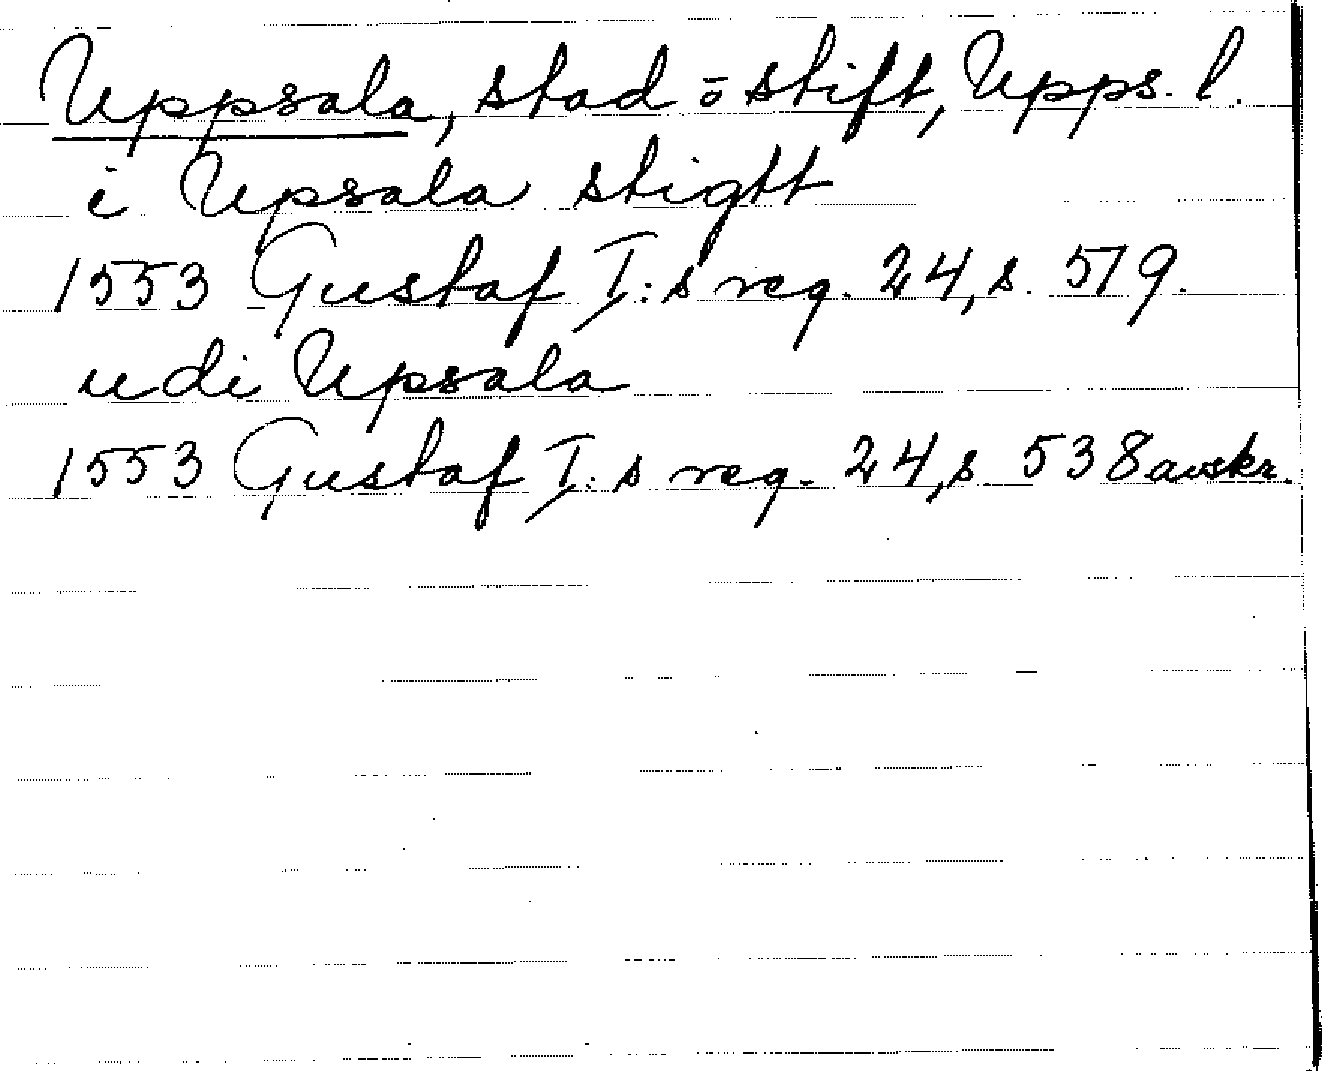 Uppsala, stad o stift, Upps. l.
i Upsala stigtt
1553 Gustaf I:s reg. 24, s. 519.
udi Upsala
1553 Gustaf I:s reg. 24, s. 538 avskr.